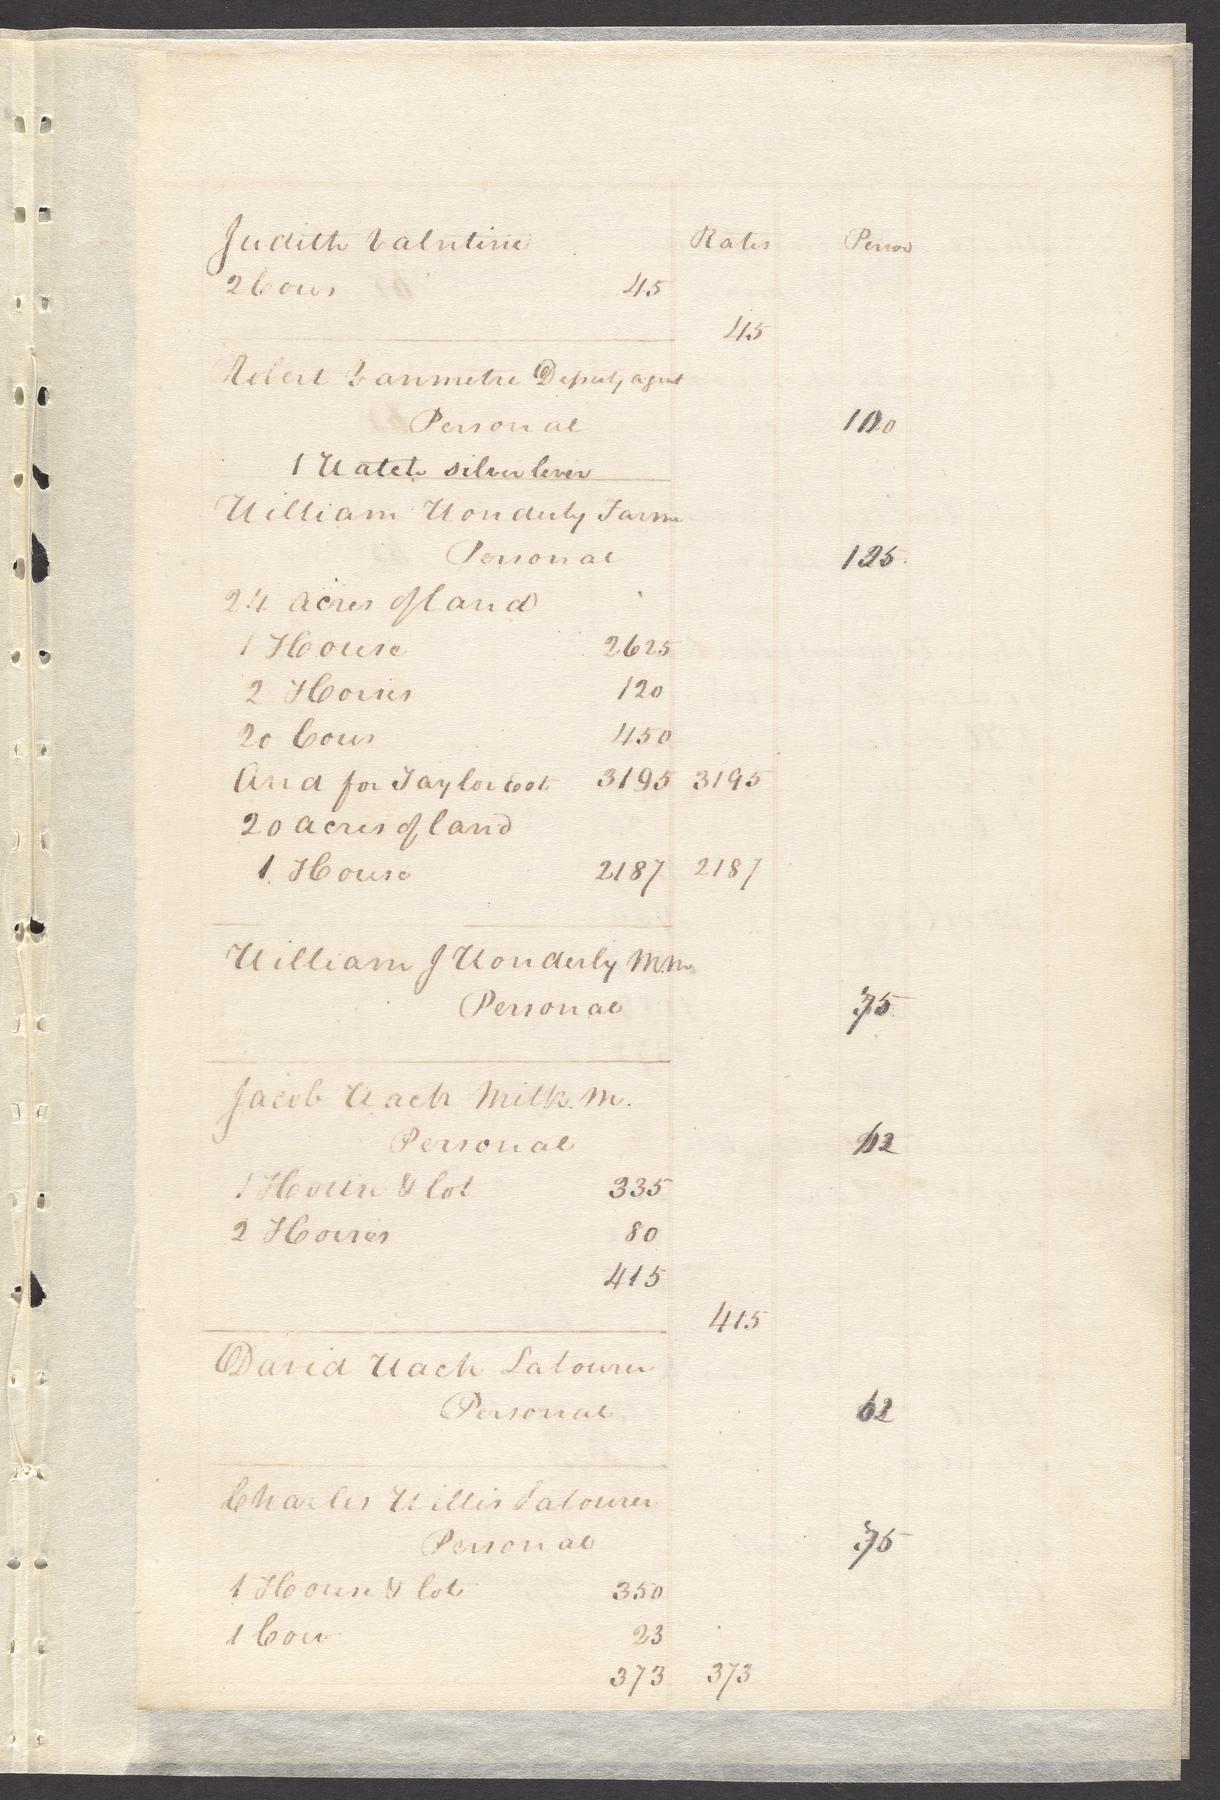 Judith Valntine Rates Person
2 Cows 45
45
Robert Vanmetre Deputy agent
Personal 100
1 Watch silver lever
William Wonderly Farm
Personal 125
24 acres of land
1 House 2625
2 Horses 120
20 Cows 450
And for Taylor Est 3195 3195
20 acres of land
1 House 2187 2187
William J Wonderly M.m
Personal 75
Jacob Wach Milk. M.
Personal 62
1 House & lot 335
2 Horses 80
415
415
David Wach Labourer
Personal 62
Charles Willis Labourer
Personal 75
1 House & lot 350
1 Cow 23
373 373